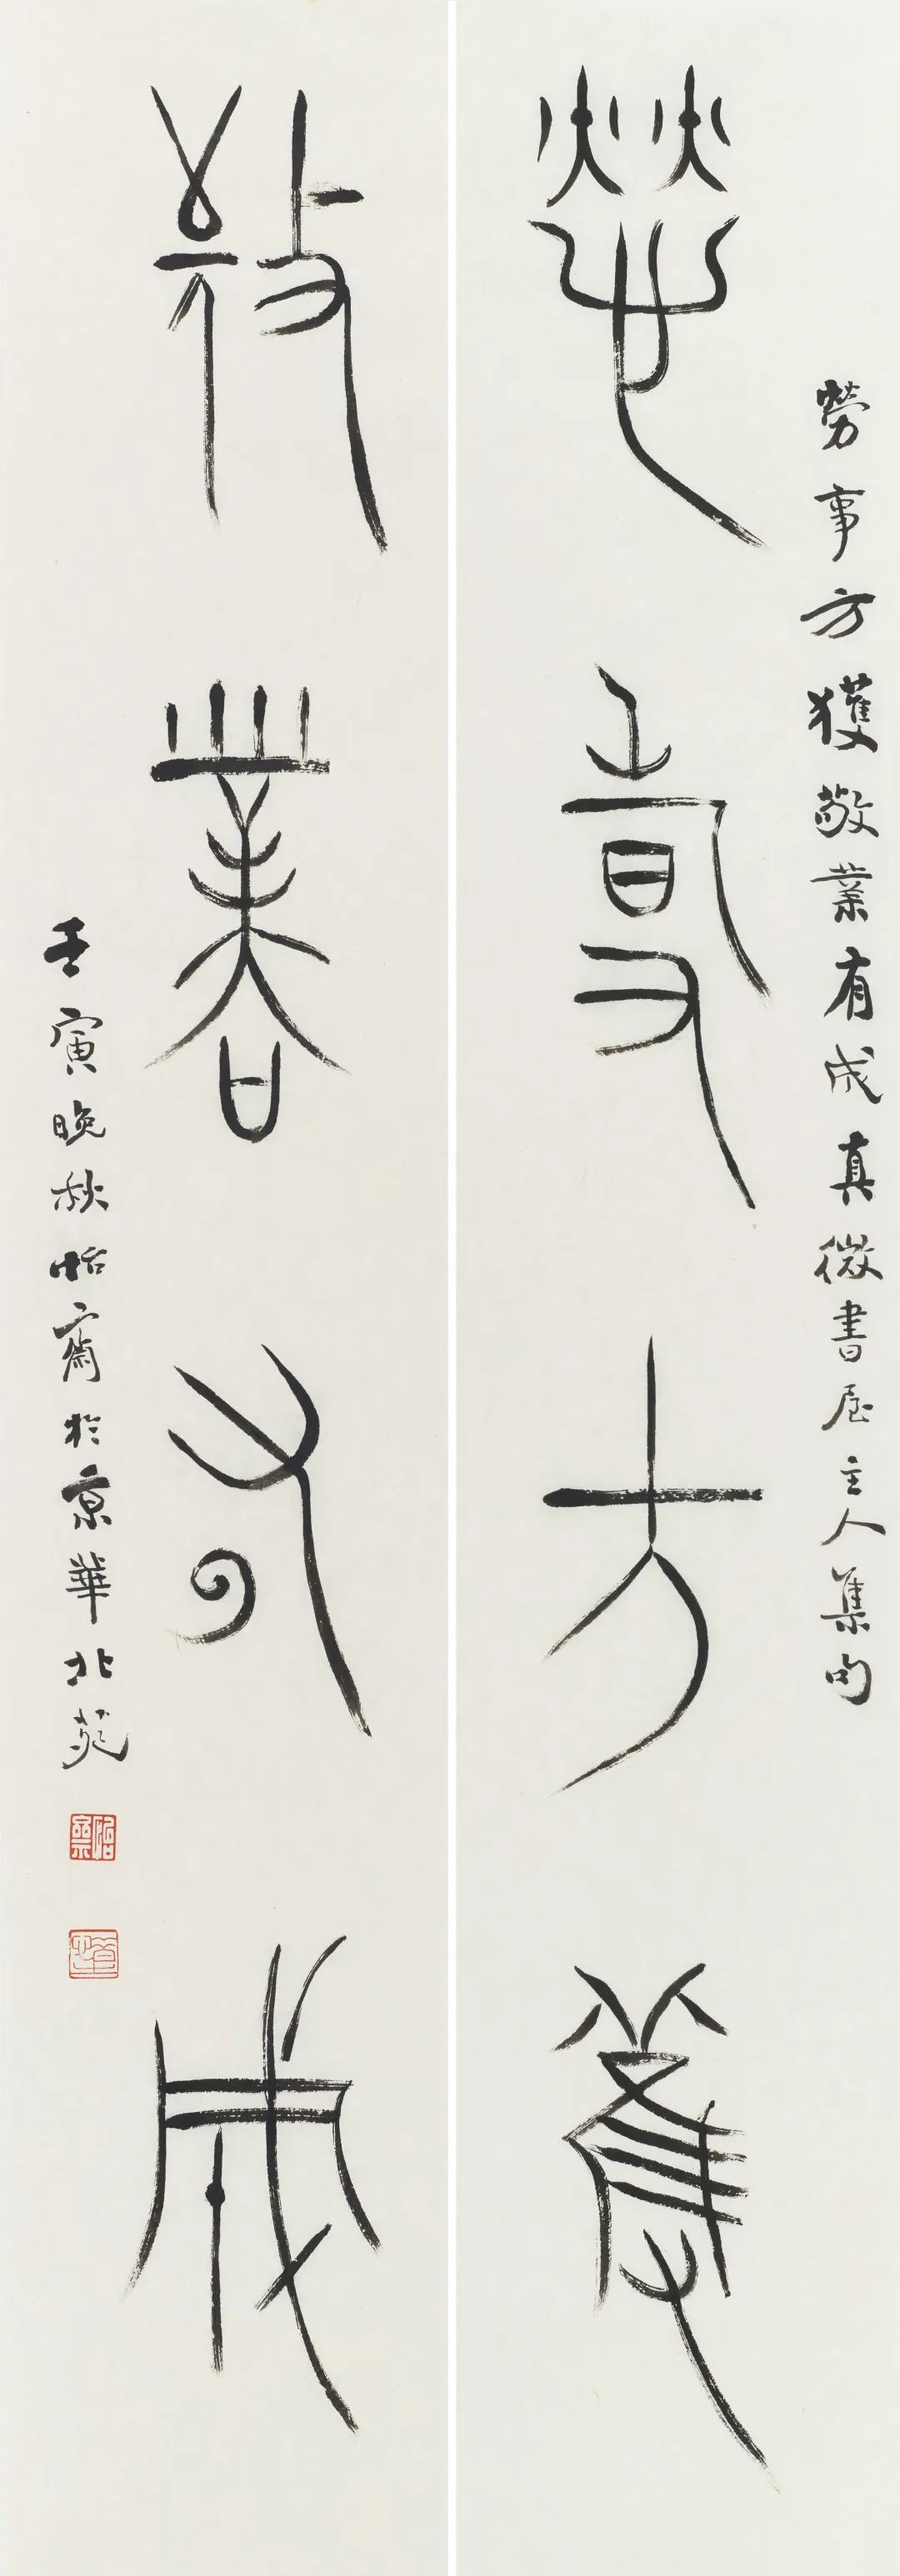 勞事方獲
勞事方獲敬業有成真微書屋主人集句
敬業有成
壬寅晚秋怡齋於京華北苑
怡齋